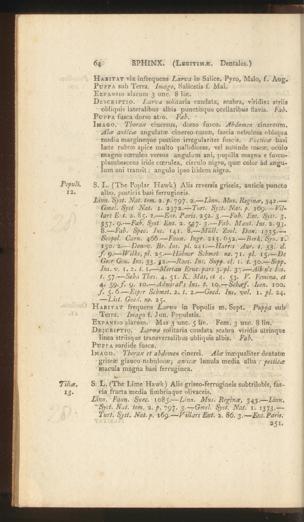 64 SPHINX. (Legitimæ. Dentales.)
Habitat vix infrequens Larva in Salice, Pyro, Malo, f. Aug.
Puppa sub Terra. Imago, Salicetis f. Mai.
Expansio alarum 3 unc. 8 lin.
Descriptio. Larva solitaria caudata, scabra, viridis; striis
obliquis lateralibus albis punctisque ocellaribus flavis. Fab.
Puppa fusca dorso atro. Fab.
Imago. Thorax cinereus, dorso fusco. Abdomen cinereum.
Alæ anticæ angulatæ cinereo-rosæ, fascia nebulosa obliqua
media margineque postico irregulariter fuscæ. Posticæ basi
late rubro apice multo pallidiores, vel sordide rosæ; ocello
magno cæruleo versus angulum ani, pupilla magna e fusco-
plumbascente iride cærulea, circulo nigro, qui color ad angu-
lum ani transit: angulo ipso itidem nigro.
Populi. S. L. (The Poplar Hawk) Alis reversis griseis, anticis puncto
12. albo, posticis basi ferrugineis.
Linn. Syst. Nat. tom. 2. p. 797. 2.—Linn. Mus. Reginæ, 342.—
Gmel. Syst. Nat. 1. 2372.—Turt. Syst. Nat. p. 169.—Vil-
lars Ent. 2. 85. 2.—Enc. Paris. 252. 3.—Fab. Ent. Syst. 3.
357. 9.—Fab. Syst. Ent. 2. 547. 3.—Fab. Mant. Ins. 2. 93.
8.—Fab. Spec. Ins. 141. 8.—Müll. Zool. Dan. 1325.—
Scopol. Carn. 466.—Faun. Ingr. 215. 652.—Berk. Syn. 1.
130. 2.—Donov. Br. Ins. pl. 241.—Harris Aur. t. 33. d.
Habitat frequens Larva in Populis m. Sept. Puppa sub
Terra. Imago f. Jun. Populetis.
Expansio alarum. Mas 3 unc. 5 lin. Fem. 3 unc. 8 lin.
Descriptio. Larva solitaria caudata scabra viridis utrinque
linea striisque transversalibus obliquis albis. Fab.
Puppa sordide fusca.
Imago. Thorax et abdomen cinerei. Alæ inæqualiter dentatæ
griseæ glauco-nebulosæ; anticæ lunula media alba; posticæ
macula magna basi ferruginea.
Tiliæ. S. L. (The Lime Hawk) Alis griseo-ferrugineis subtrilobis, fas-
13. cia fracta media fimbriaque olivaceis.
Linn. Faun. Suec. 1085.—Linn. Mus. Reginæ, 343.—Linn.
Syst. Nat. tom. 2. p. 797. 3.—Gmel. Syst. Nat. 1. 2373.—
Turt. Syst. Nat. p. 169.—Villars Ent. 2. 86. 3.—Enc. Paris.
251.